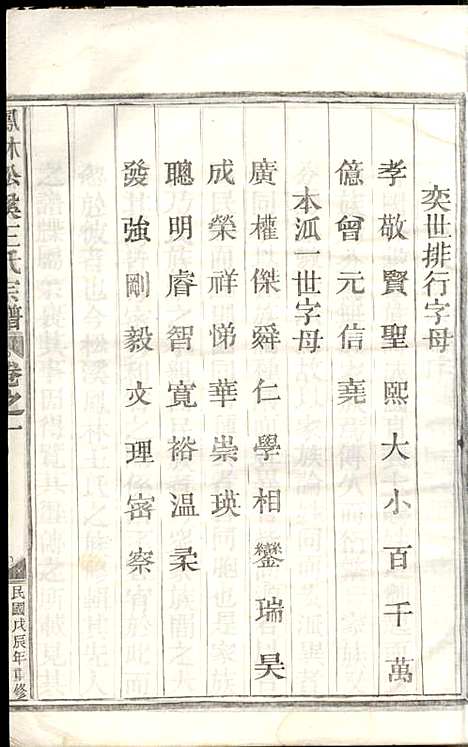 奕世排行字母
孝敬賢聖熙大小百千萬
億曾元信堯
本派一世字母
廣權傑舜仁學相鑾瑞昊
成榮祥悌華崇瑛
聰明睿智寬裕溫柔
發強剛毅文理密察
鳳林松溪王氏宗譜 卷之一
民國戊辰年重修